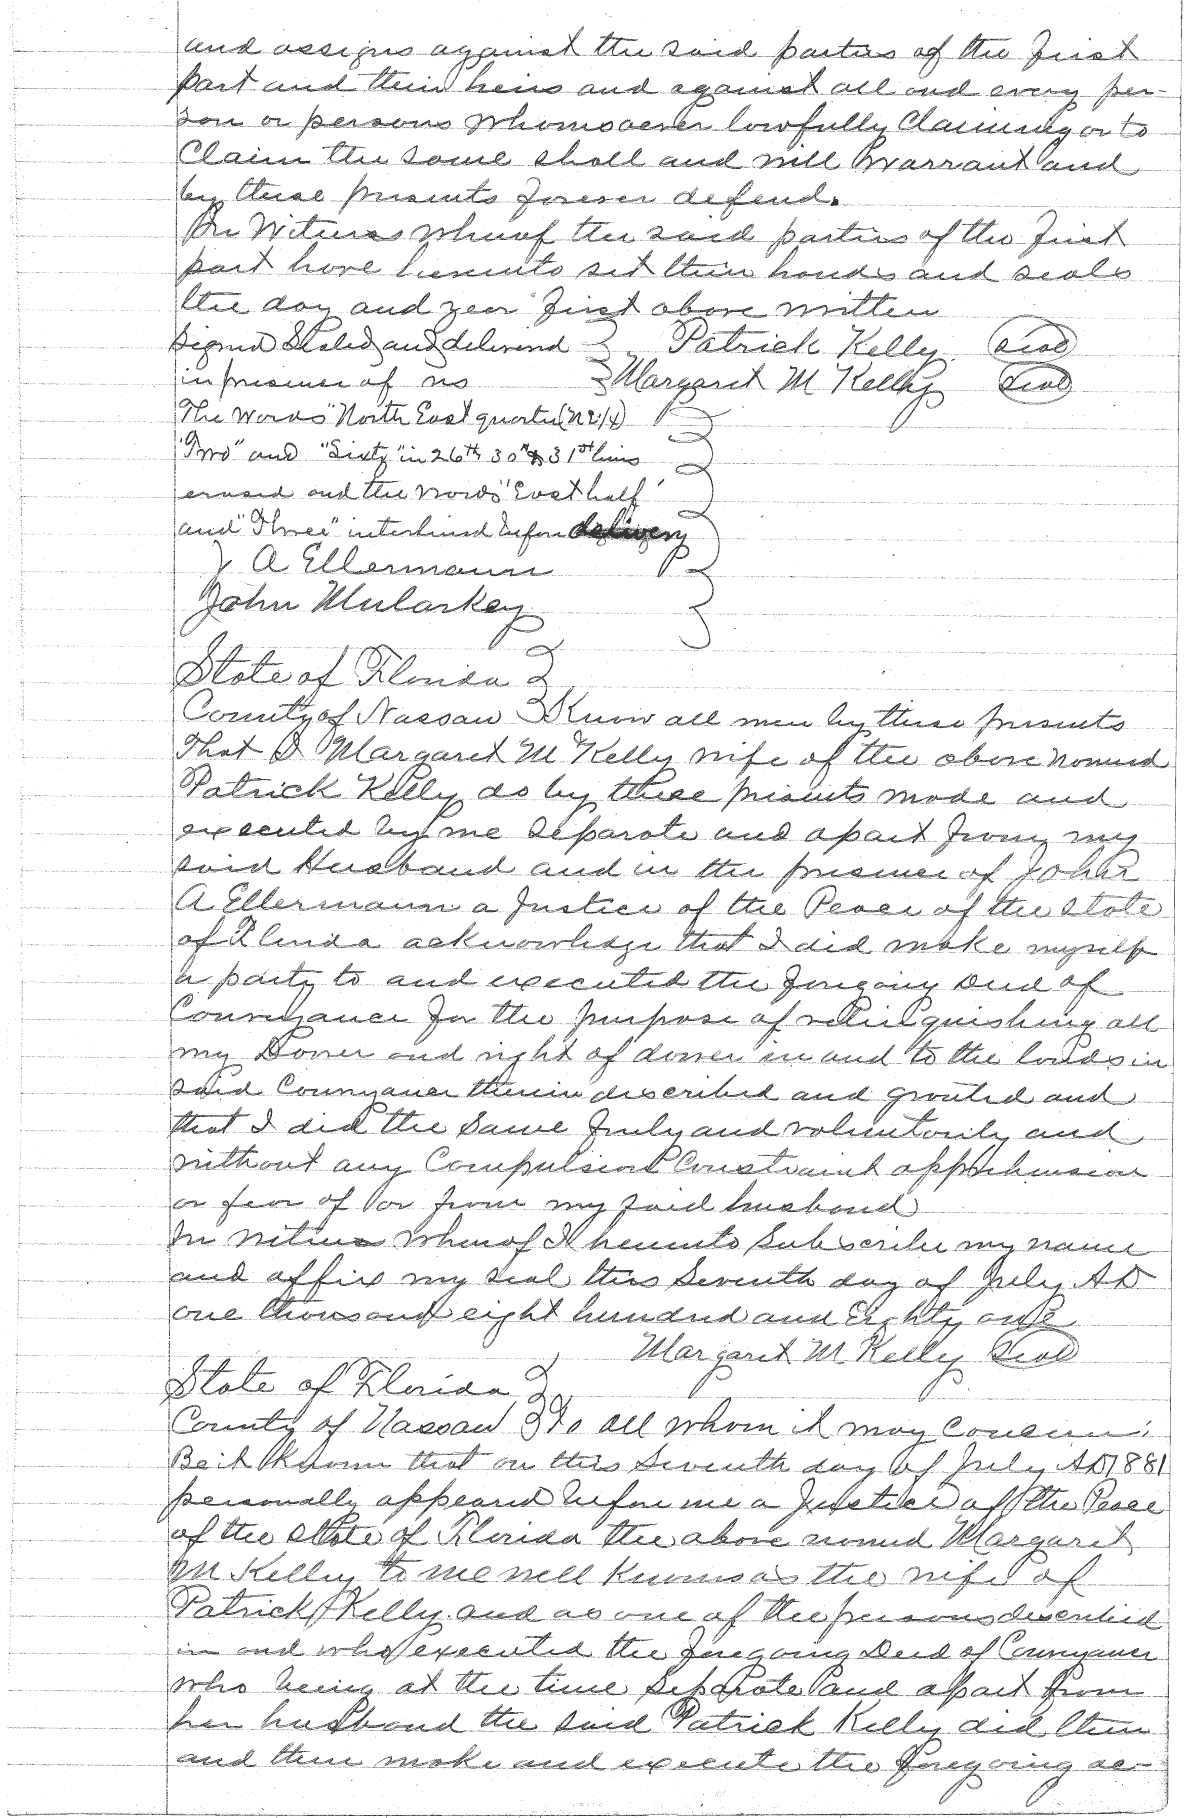 and assigns against the said parties of the first
part and their heirs and against all and every per-
son or persons whomsoever lawfully Claiming or to
Claim the same shall and will Warrant and
by these presents forever defend.
In Witness whereof the said parties of the first
part have hereunto set their hands and seals
the day and year first above written
Signed Sealed and delivered } Patrick Kelly (Seal)
in presence of us } Margaret M Kelly (Seal)
The words "North East quarter (NE1/4)
"Two" and "Sixty" in 26th 30th & 31st lines
erased and the words "East half"
and "Three" interlined before delivery
J A Ellermann
John Mularkey
State of Florida }
County of Nassau } Know all men by these presents
That I Margaret M Kelly wife of the above named
Patrick Kelly do by these presents made and
executed by me separate and apart from my
said Husband and in the presence of John
A Ellermann a Justice of the Peace of the State
of Florida acknowledge that I did make myself
a party to and executed the foregoing Deed of
Conveyance for the purpose of relinquishing all
my Dower and right of dower in and to the lands in
said Conveyance therein described and granted and
that I did the same freely and voluntarily and
without any Compulsion Constraint apprehension
or fear of or from my said husband
In witness whereof I hereunto Subscribe my name
and affix my seal this Seventh day of July AD
one thousand eight hundred and Eighty one
Margaret M Kelly (Seal)
State of Florida }
County of Nassau } To all whom it may Concern:
Be it Known that on this Seventh day of July AD 1881
personally appeared before me a Justice of the Peace
of the State of Florida the above named Margaret
M Kelly to me well known as the wife of
Patrick Kelly and as one of the persons described
in and who executed the foregoing Deed of Conveyance
who being at the time Separate and apart from
her husband the said Patrick Kelly did then
and there make and execute the foregoing ac-